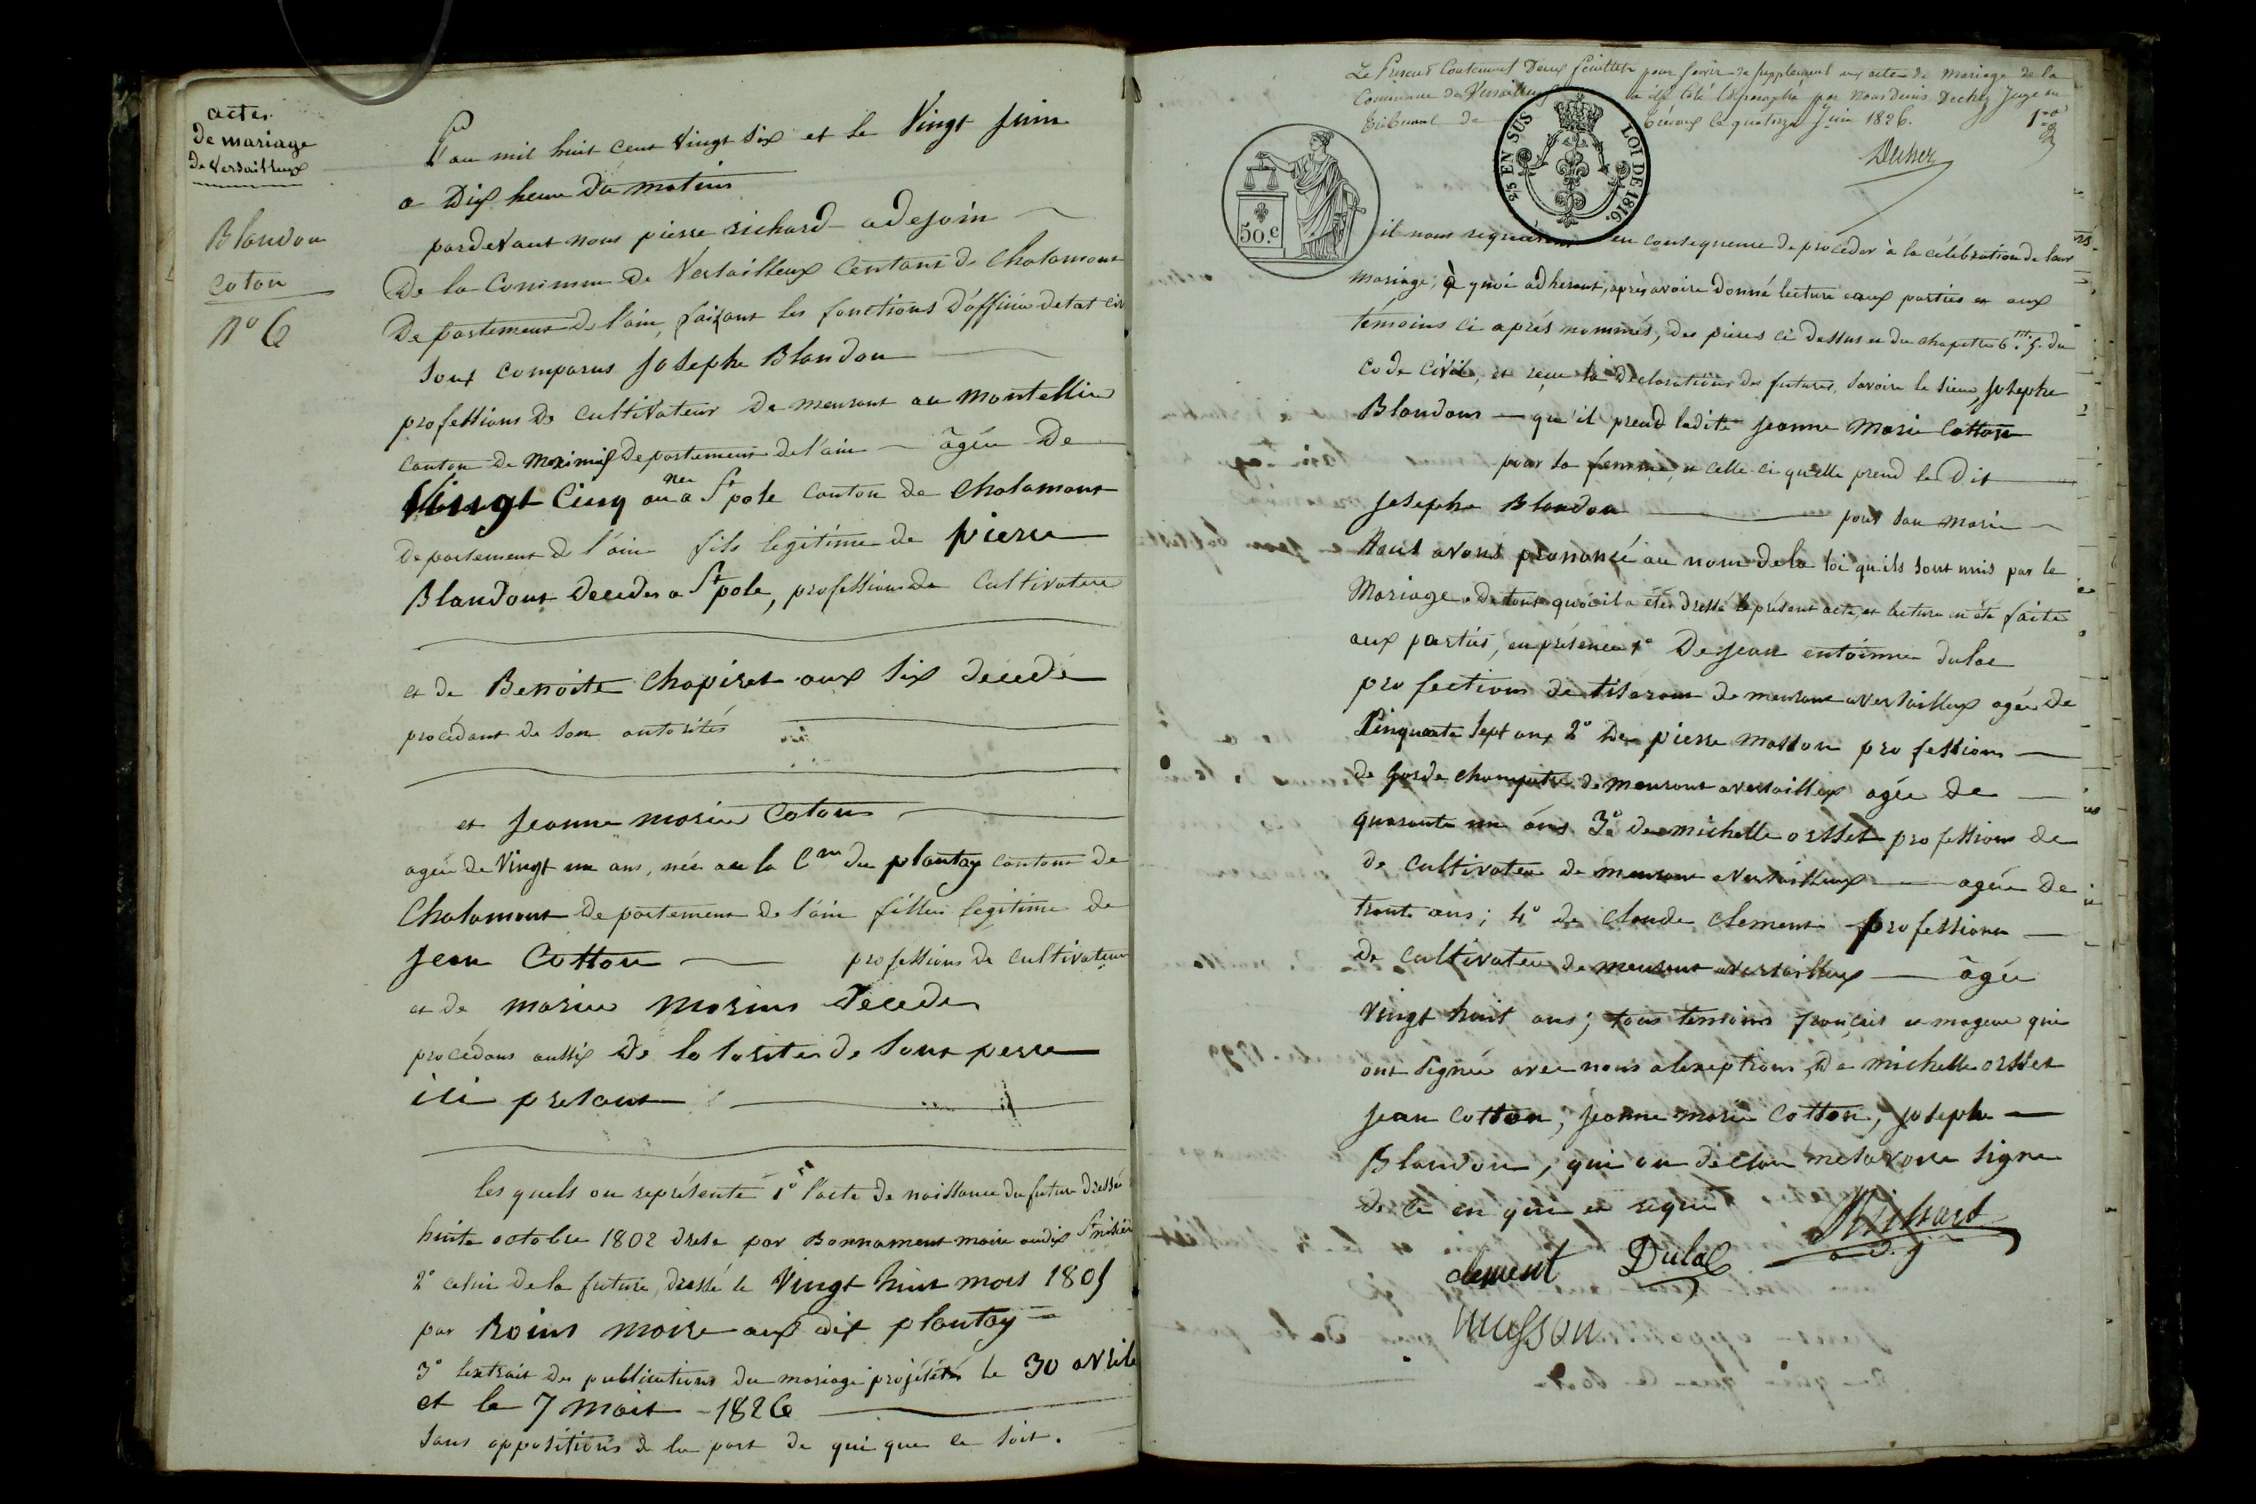 actes
de mariage
de Versailleux
Blandon
coton
n° 6
L'an mil huit cent vingt six et le Vingt Juin
a Dix heure du matin
pardevant nous pierre richard adejoin
De la Commune de Versailleux Centant de Chalamont
Departement de l'ain, faisant les fonctions d'officie detat civ
Sont comparus Josephe Blandon
professions de cultivateur demeurant au montellier
canton de Meximieux departement de l'ain âgée De
Vingt Cinq an nee a St pole canton de Chalamont
departement de l'ain fils légitime de pierre
Blandont decedes a St pole, professions de Cultivateur
et de Benoite Chapiret aux Six décedé
procédant de son autorités
et Jeanne marie Coton
agée de Vingt un ans, née au la Cne du plantay cantons de
Chalamont departement de l'ain filles légitime de
Jean Cotton professions de cultivateur
et de marie Morins decedes
procédans aussix de la torites de sont perre
ici presant
les quels on représente 1° l'acte de naissance du future dressé
huite octobre 1802 drese par Bonnament maire audix St
2° celui de la future, dressé le Vingt huit mars 1805
par Roins maire aux dix plantay
3° lextrait des publications du mariage projétés le 30 avrile
et le 7 mait 1826
sans oppositions de la part de qui que ce soit.
Le Present Contenant Deux feuillets pour servir de supplement aux actes de Mariage de la
Commune de Versailleux a été coté & paraphé par Nous Denis Decher Juge au
Tribunal de Trévoux le quatorze Juin 1826.
1er
50.c
2/5 EN SUS
LOI DE 1816.
il nous requièrent en consequence de procéder à la célébration de leur
mariage; à quoi adhérant, après avoire donné lecture eaux parties et aux
témoins ci après nommés, des pièces ci dessus et du chapitre 6 du
code civil, et reçu la déclarations des futures, savoire le sieur Josephe
Blandons qu'il prend ladite Jeanne Marie Cotton
pour sa femme, et celle-ci qu'elle prend le Dit
Josephe Blandon pour son marie
Nous avons prononcé au nom de la loi qu'ils sont unis par le
Mariage. De tout quoi il a étés dressé le présent acte, et lecture en été faite
aux partiés, en présence 1° De Jean entoinne dulac
profections de tiserant demeurant a versailleux agée de
Cinquante sept ans 2° De pierre Masson professions
de Garde champetre demeurant a versailleux agée de
quarante un ans 3° de michelle orsset professions de
de cultivateu demeurant a Versailleux agée de
trente ans; 4° de Claude Clement professions
de cultivateu demeurant a versailleux âgée
Vingt huit ans; tous temoins français et mageur qui
ont signée avec nous a lexeptions De michelle orsset
Jean Cotton, Jeanne marie Cotton, Josephe
Blandon, qui on declarer nesavoire signe
de ce en quie et requi
Richard
adj
clement Dulac
Masson